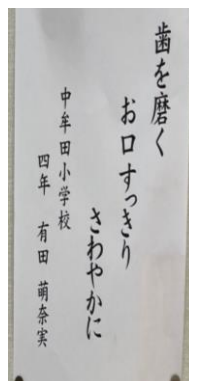 歯を磨く
お口すっきり
さわやかに
中牟田小学校
四年 有田 萌奈実